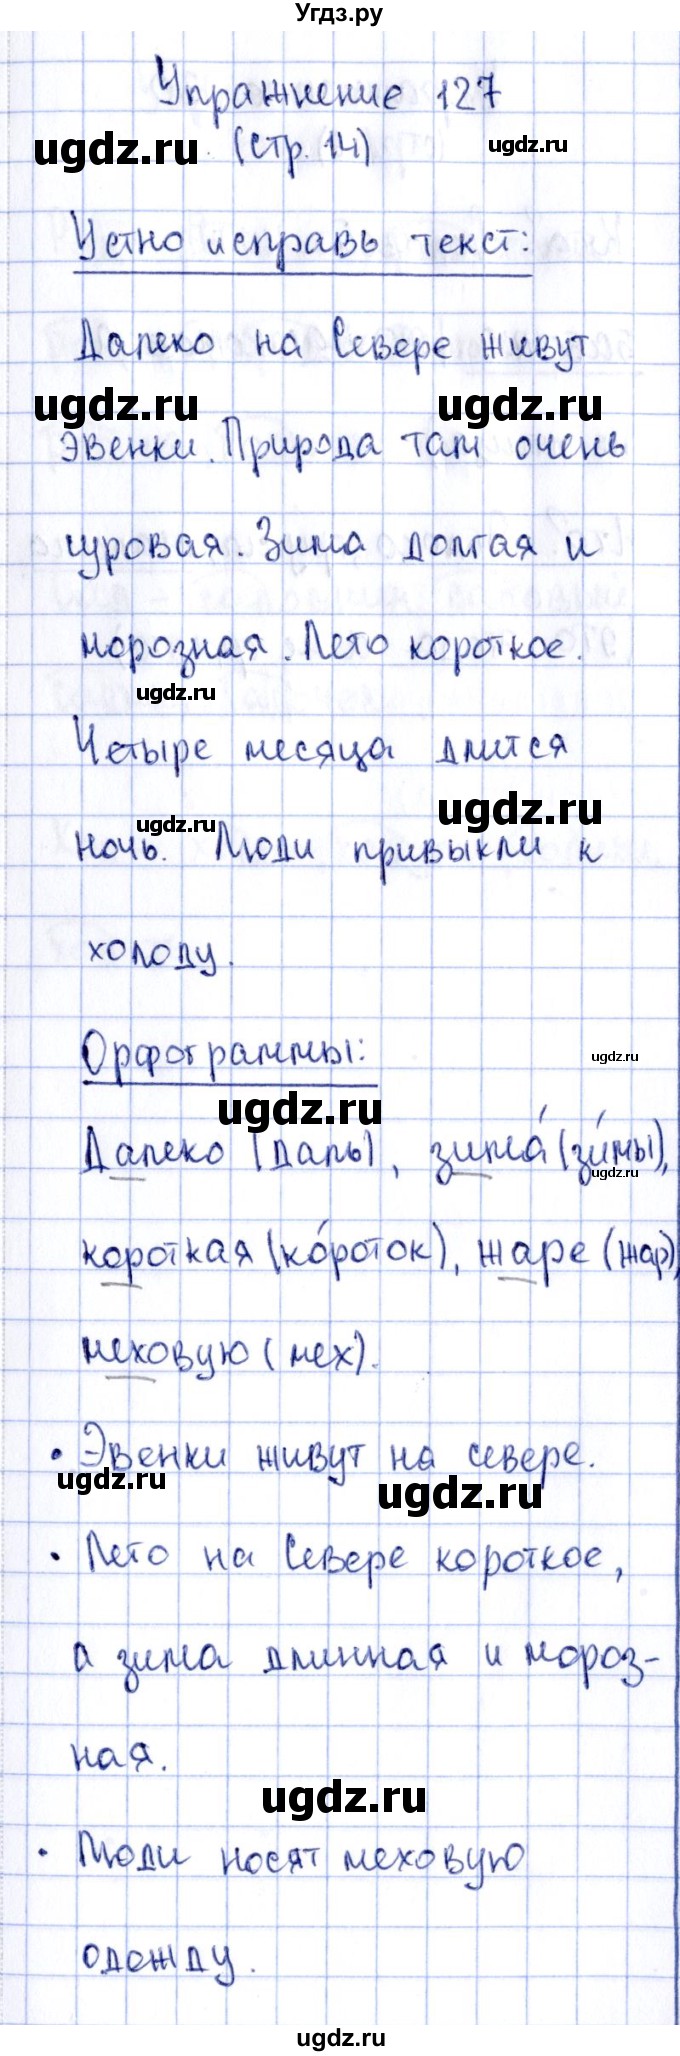 Угдз.ру
Упражнение 127
ugdz.ru (стр. 14) ugdz.ru
Устно исправь текст:
Далеко на Севере живут
ugdz.ru ugdz.ru
эвенки. Природа там очень
суровая. Зима долгая и
морозная. Лето короткое.
ugdz.ru
Четыре месяца длится
ugdz.ru
ugdz.ru
ночь. Люди привыкли к
холоду.
Орфограммы:
ugdz.ru
ugdz.ru
Далеко (даль), зима́ (зи́мы),
ugdz.ru
короткая (ко́роток), жаре (жар),
меховую (мех).
• Эвенки живут на севере.
ugdz.ru ugdz.ru
• Лето на Севере короткое,
а зима длинная и мороз-
ная.
ugdz.ru
• Люди носят меховую
одежду.
ugdz.ru